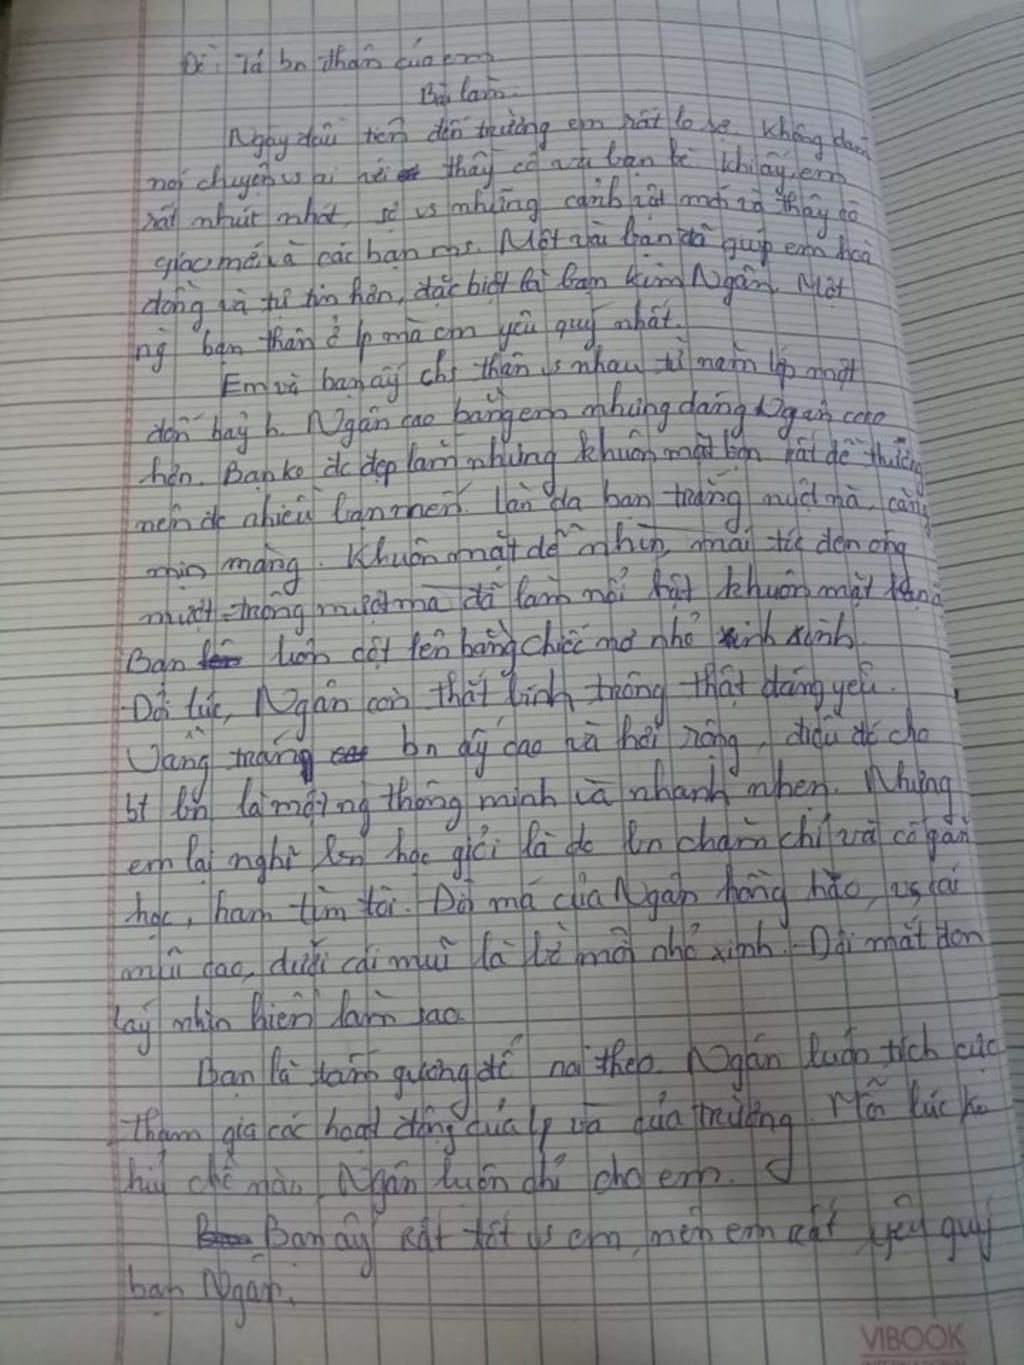 Đề: Tả bn thân của em
Bài làm:
Ngày đầu tiên đến trường em rất lo sợ. Không dám
nói chuyện vs ai kể thầy cô và bạn bè khi ấy, em
rất nhút nhát, sợ vs những cảnh vật mới và thầy cô
giáo mới và các bạn ms. Một vài bạn đã giúp em hoà
đồng và tự tin hơn, đặc biệt là bạn Kim Ngân. Một
ng bạn thân ở lp mà em yêu quý nhất.
Em và bạn ấy chs thân vs nhau từ năm lớp một
đến bây h. Ngân cao bằng em nhưng dáng Ngân cao
hơn. Bạn ko đc đẹp lắm nhưng khuôn mặt bạn rất dễ thương
nên đc nhiều bạn mến. Làn da bạn trắng mượt mà, căng
mịn màng. Khuôn mặt dễ nhìn, mái tóc đen óng
mượt trông mượt mà đã làm nổi bật khuôn mặt
Bạn luôn cột lên bằng chiếc nơ nhỏ xinh xinh.
Đôi lúc, Ngân còn thắt bính trông thật đáng yêu.
Vầng trán bn ấy cao và hơi rộng, điều đó cho
bt bn là một ng thông minh và nhanh nhẹn. Nhưng
em lại nghĩ bn học giỏi là do bn chăm chỉ và cố gắn
học, ham tìm tòi. Đôi má của Ngân hồng hào, vs cái
mũi cao, dưới cái mũi là bờ môi nhỏ xinh. Đôi mắt đen
láy nhìn hiền làm sao.
Bạn là tấm gương để noi theo. Ngân luôn tích cực
tham gia các hoạt động của lp và của trường. Mỗi lúc ko
hiu chỗ nào, Ngân luôn chỉ cho em.
Bạn ấy rất tốt vs em, nên em rất yêu quý
bạn Ngân.
VIBOOK